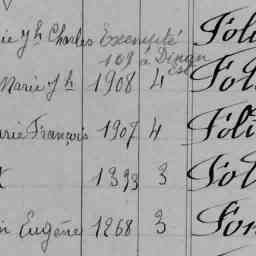 rie Jh Charles Exempté Foli
108 à Dinan
Marie Jh 1908 4 Fol
arie François 1907 4 Foli
1893 3 Fol
in Eugène 1868 3 Fon